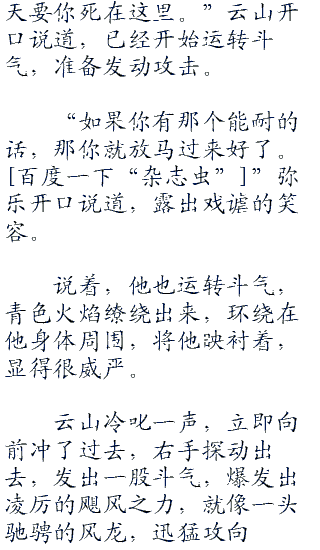 天要你死在这里。”云山开
口说道，已经开始运转斗
气，准备发动攻击。
“如果你有那个能耐的
话，那你就放马过来好了。
[百度一下“杂志虫”]”弥
乐开口说道，露出戏谑的笑
容。
说着，他也运转斗气，
青色火焰缭绕出来，环绕在
他身体周围，将他映衬着，
显得很威严。
云山冷叱一声，立即向
前冲了过去，右手探动出
去，发出一股斗气，爆发出
凌厉的飓风之力，就像一头
驰骋的风龙，迅猛攻向